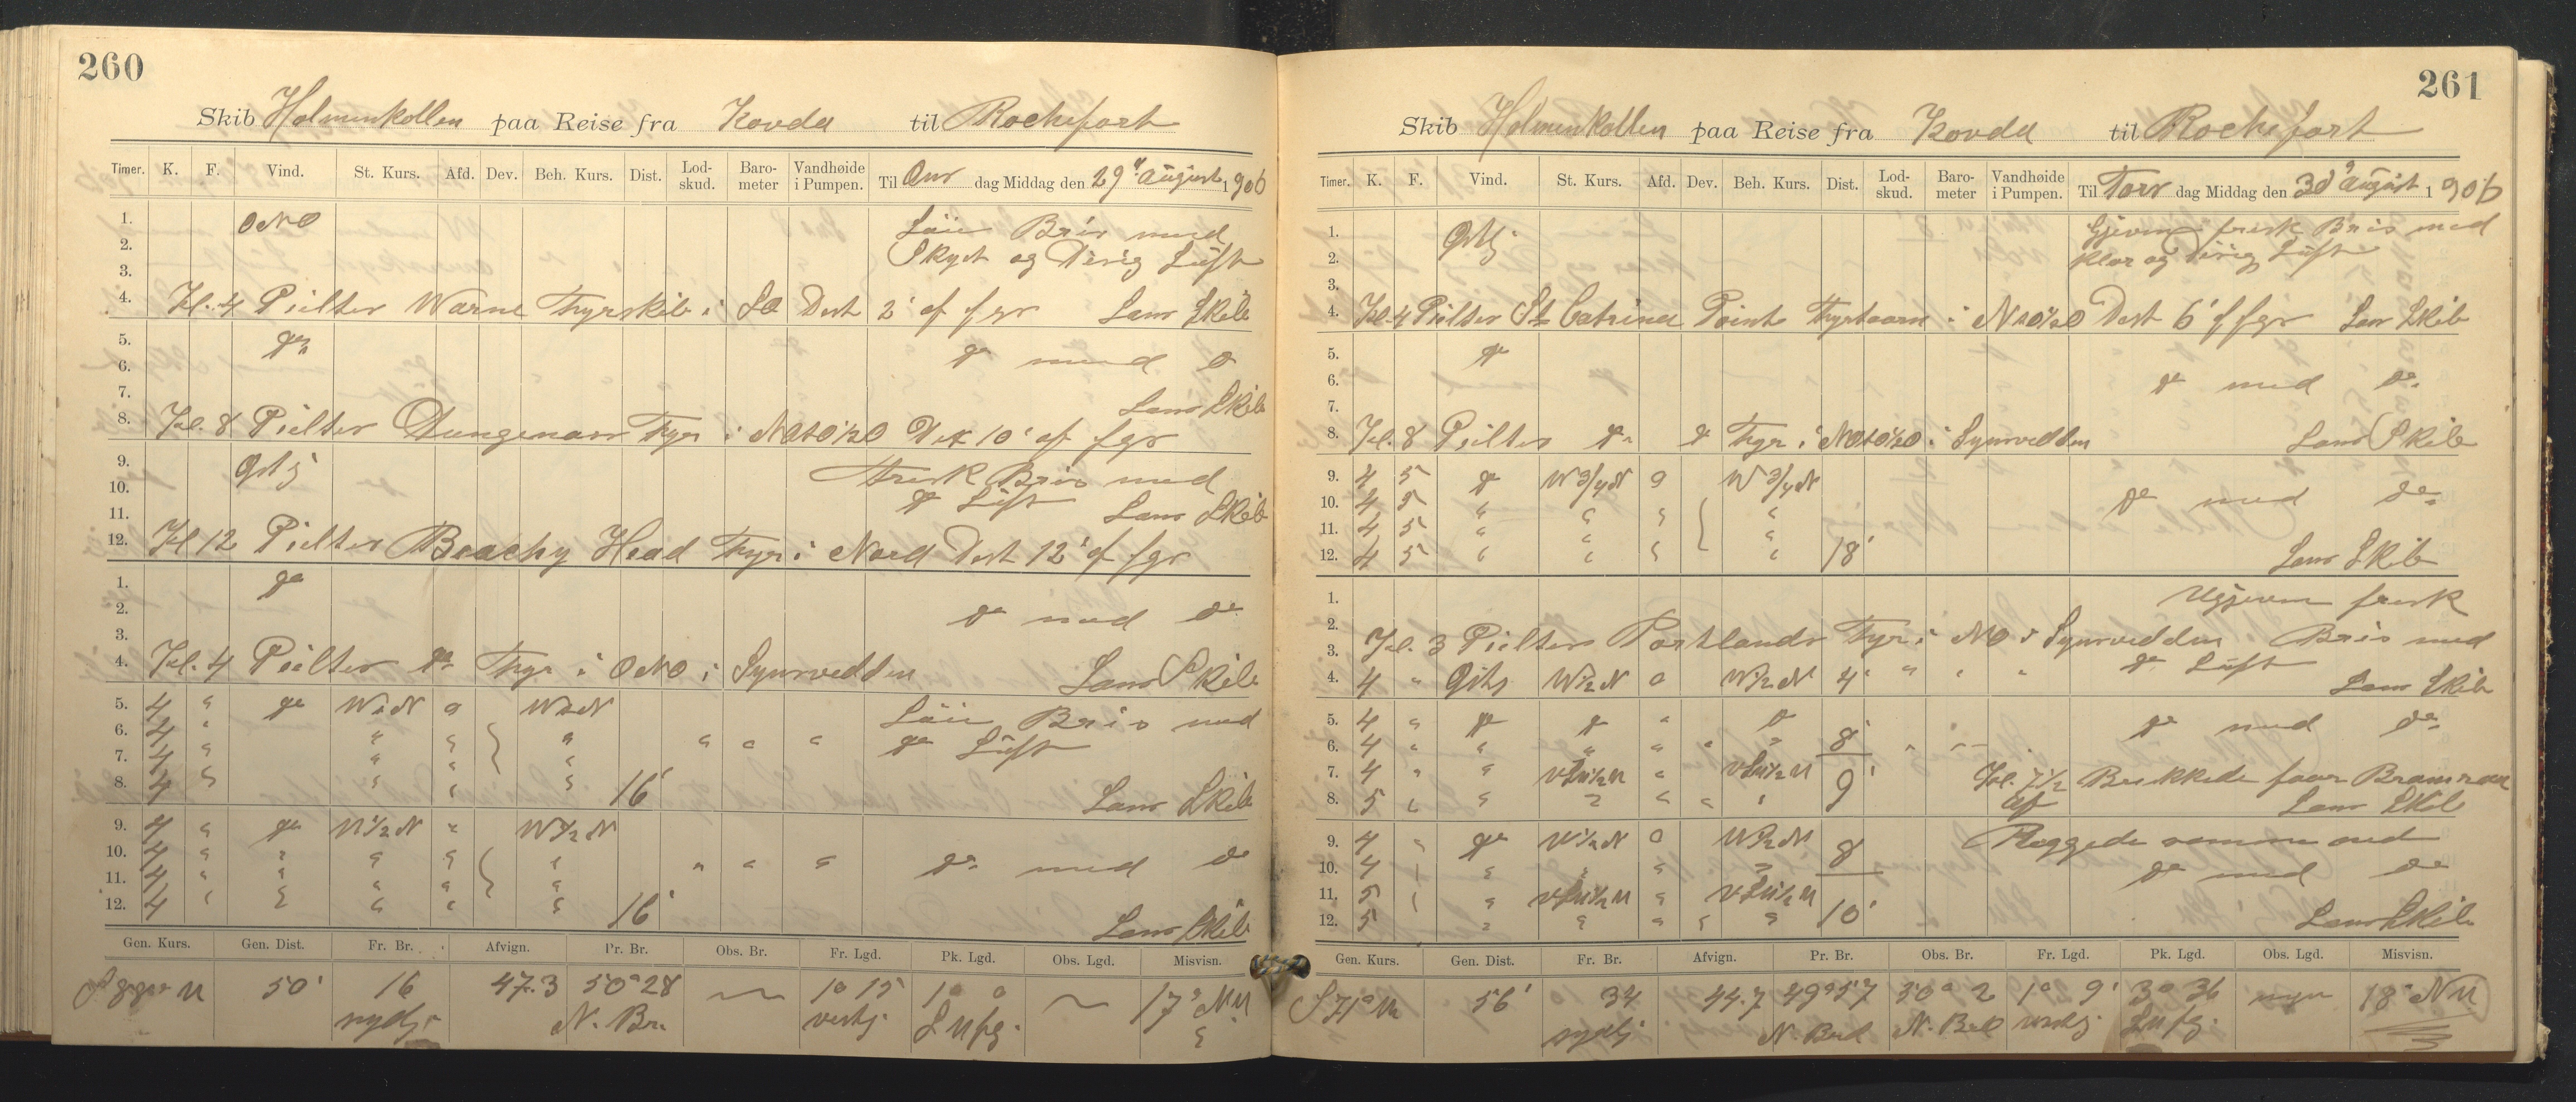 260
Skib Holmenkollen paa Reise fra Kovda til Rochefort
Timer. K. F. Vind. St. Kurs. Afd. Dev. Beh. Kurs. Dist. Lod-skud. Baro-meter Vandhøide i Pumpen. Til Ons dag Middag den 29 August 1906
1. ONO Laii Bris med
2. Skyet og Disig Luft
3.
4. Kl. 4 Peilter Warne Fyrskib i SO Dist 2' af fgr Lens Skib
5. do
6. do med do
7. Lens Skib
8. Kl. 8 Peilter Dungenæss Fyr i NOtO½O Dist 10' af fgr
9. Ostlg Frisk Bris med
10. do Luft
11. Lens Skib
12. Kl 12 Peilter Beachy Head Fyr i Nord Dist 12' af fgr
1. do
2. do med do
3.
4. Kl. 4 Peilter do Fyr i ONO i Synsvidden Lens Skib
5. 4 " do WtN 0 WtN Laii Bris med
6. 4 " " " " " " " do Luft
7. 4 " " " "
8. 4 " " " " 16' Lens Skib
9. 4 " do W½N " W½N
10. 4 " " " " " " " " do med do
11. 4 " " " " "
12. 4 " " " " " 16' Lens Skib
Gen. Kurs. Gen. Dist. Fr. Br. Afvign. Pr. Br. Obs. Br. Fr. Lgd. Pk. Lgd. Obs. Lgd. Misvisn.
50' 16 47.3 50°28 1° 15 1° 0 17° NW
sydlg N. Br. vestlg
261
Skib Holmenkollen paa Reise fra Kovda til Rochefort
Timer. K. F. Vind. St. Kurs. Afd. Dev. Beh. Kurs. Dist. Lod-skud. Baro-meter Vandhøide i Pumpen. Til Tors dag Middag den 30 August 1906
1. Ostlg Gjevn frisk Bris med
2. Klar og Disig Luft
3.
4. Kl. 4 Peilter St Catrina Point Fyrtaarn i NtO½O Dist 6' af fgr Lens Skib
5. do
6. do med do
7.
8. Kl. 8 Peilter do do Fyr i NOtO½O i Synsvidden Lens Skib
9. 4 5 do W¾N 0 W¾N
10. 4 5 " " " " do med do
11. 4 5 " " " "
12. 4 5 " " " " 18' Lens Skib
1. Ugjevn frisk
2.
3. Kl. 3 Peilter Portlands Fyr i NO i Synsvidden Bris med
4. 4 " Ostlg W½N 0 W½N 4' " " " do Luft
Lens Skib
5. 4 " do do " do do med do
6. 4 " " " " " " 8' " "
7. 4 " " vSv½W " vSv½W Kl. 7½ Brækkede foor Bramraa
8. 5 " " " " " " 9' af Lens Skib
9. 4 " do W½N 0 W½N Riggede samme ned
10. 4 " " " " " 8 do med do
11. 5 " " vSv½W " vSv½W
12. 5 " " " " " 10' Lens Skib
Gen. Kurs. Gen. Dist. Fr. Br. Afvign. Pr. Br. Obs. Br. Fr. Lgd. Pk. Lgd. Obs. Lgd. Misvisn.
S 71° W 56' 34 44.7 49°57 50° 2 1° 9' 3° 36 18° NW
sydlg N. Bred N. Bred vestlg